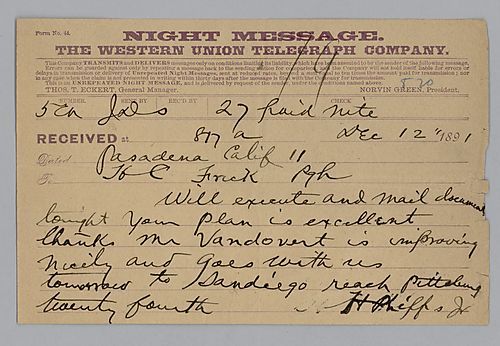 Form No. 44.
NIGHT MESSAGE.
THE WESTERN UNION TELEGRAPH COMPANY.
This Company TRANSMITS and DELIVERS messages only on conditions limiting its liability, which have been assented to by the sender of the following message.
Errors can be guarded against only by repeating a message back to the sending station for comparison, and the Company will not hold itself liable for errors or
delays in transmission or delivery of Unrepeated Night Messages, sent at reduced rates, beyond a sum equal to ten times the amount paid for transmission; nor
in any case when the claim is not presented in writing within thirty days after the message is filed with the Company for transmission.
This is an UNREPEATED NIGHT MESSAGE, and is delivered by request of the sender, under the conditions named above.
THOS. T. ECKERT, General Manager. NORVIN GREEN, President.
NUMBER SENT BY REC'D BY CHECK
27 paid nite
RECEIVED at 817 a Dec 12 1891
Dated Pasadena Calif 11
To H C Frick Pgh
Will execute and mail document
tonight Your plan is excellent
thanks Mr Vandovert is improving
nicely and goes with us
tomorrow to Sandiego reach Pittsburg
twenty fourth H Phipps Jr